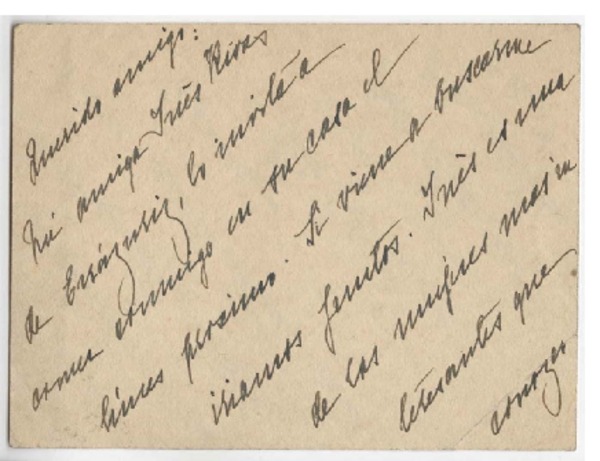 Querido amigo:
Mi amiga Inés Rivas
de Errázuriz, lo invita a
comer conmigo en su casa el
lunes proximo. Si viene a buscarme
iriamos juntos. Inés es una
de las mujeres mas in
teresantes que
conozco